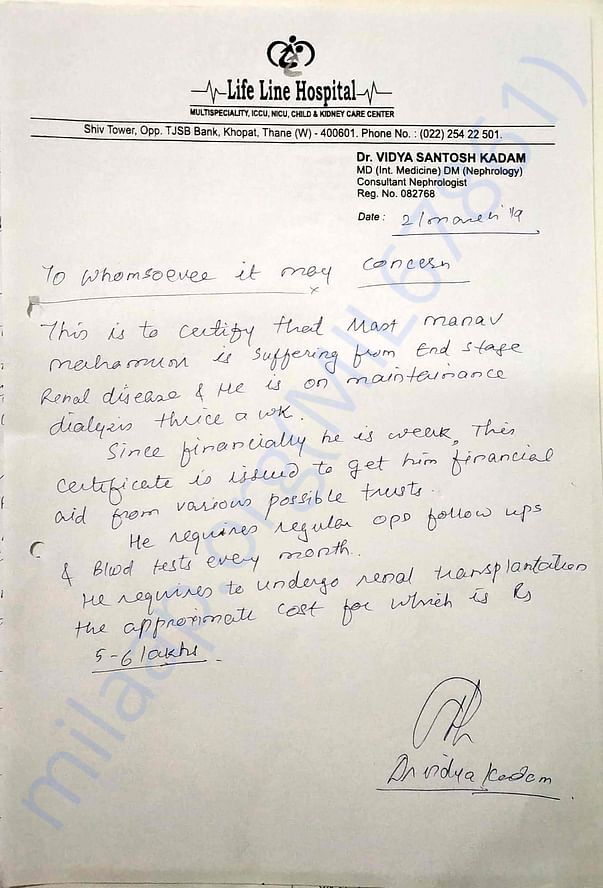 Life Line Hospital
MULTISPECIALITY, ICCU, NICU, CHILD & KIDNEY CARE CENTER
Shiv Tower, Opp. TJSB Bank, Khopat, Thane (W) - 400601. Phone No. : (022) 254 22 501.
Dr. VIDYA SANTOSH KADAM
MD (Int. Medicine) DM (Nephrology)
Consultant Nephrologist
Reg. No. 082768
Date : 2/march '19
To whomsoever it may concern
This is to certify that Mast manav
is suffering from End stage
Renal disease & He is on maintainance
dialysis thrice a wk.
Since financially he is weak, This
certificate is issued to get him financial
aid from various possible trusts.
He requires regular opd follow ups
& Blood tests every month.
He requires to undergo renal transplantation
the approximate cost for which is Rs
5-6 lakhs.
Dr vidya Kadam